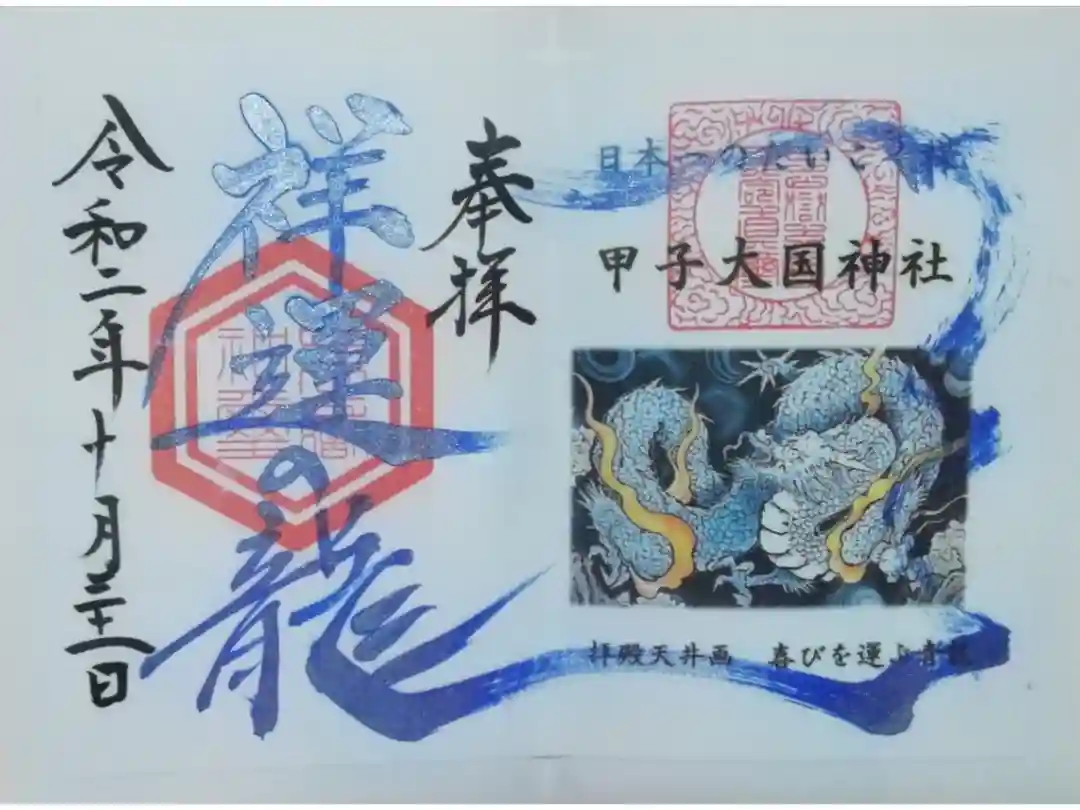 日本一のだいこく様
甲子大国神社
拝殿天井画　喜びを運ぶ青龍
奉拝
祥運の龍
令和二年十月三十一日